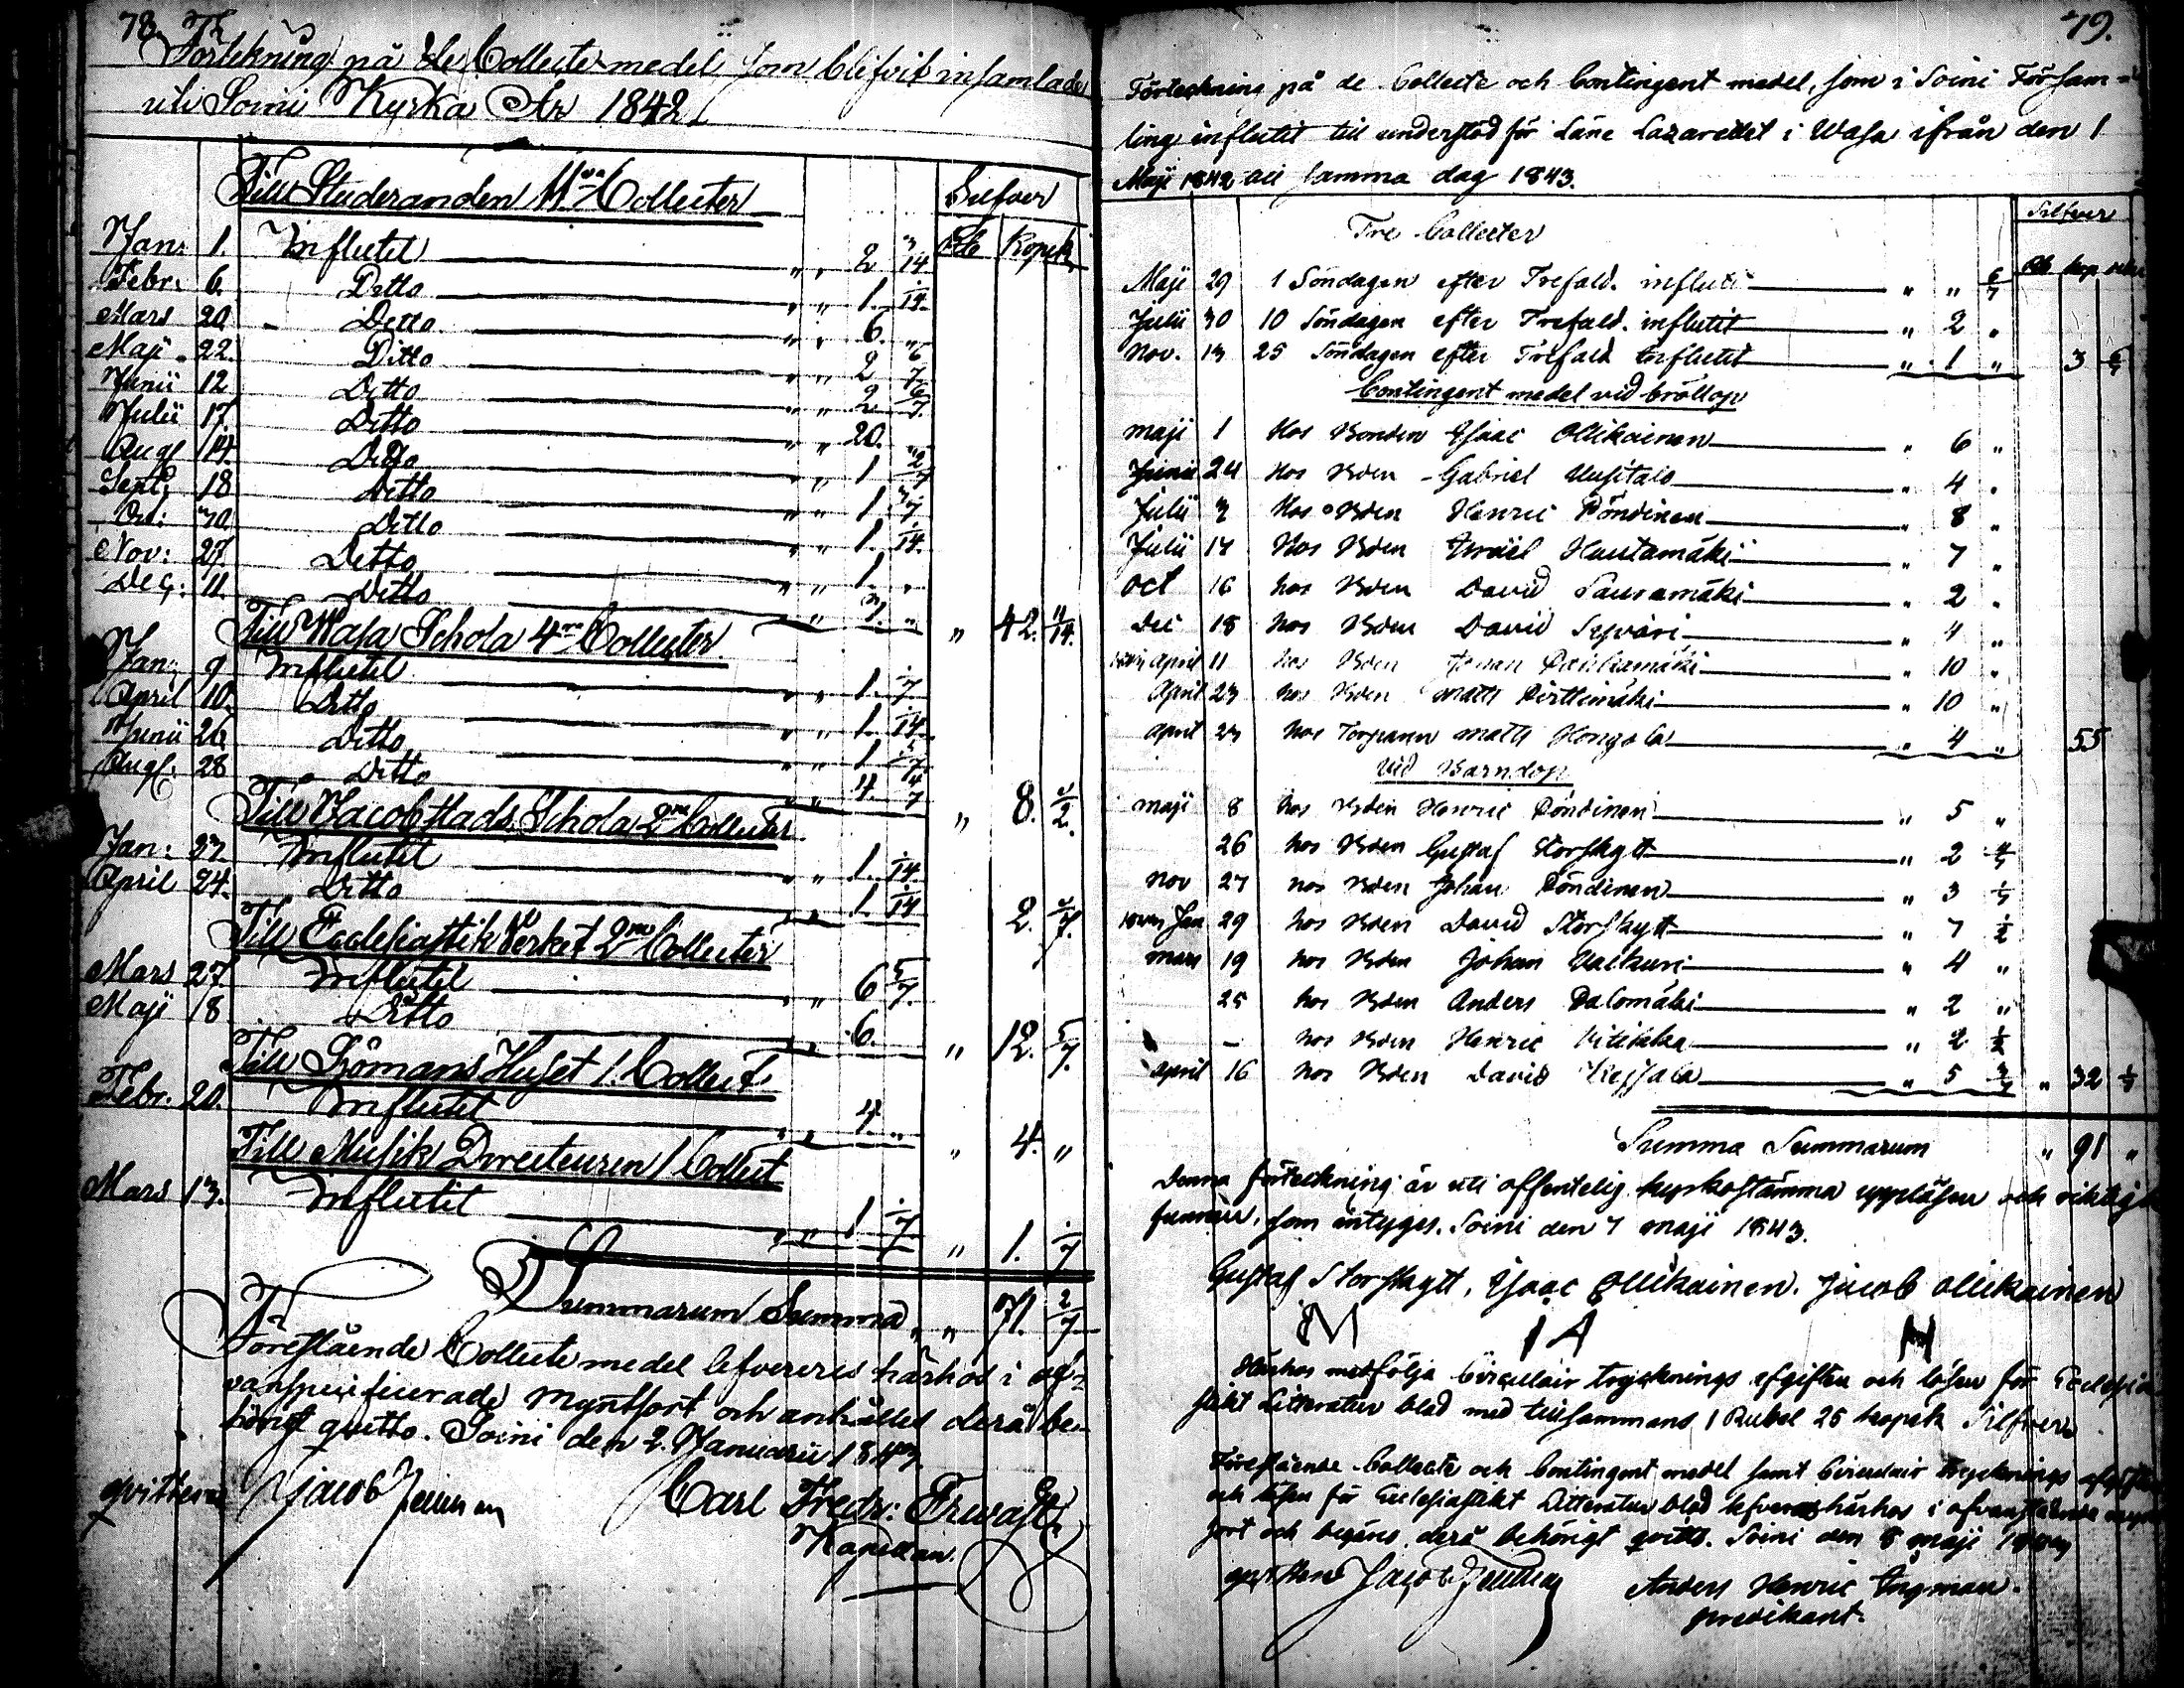 78.
Förtekning på de Collecte medel som blifvit insamlade
uti Soini Kyrka År 1842
Till Studeranden 11 Collecter
Silfver
Rb Kopek
Jan: 1. Influtit " " 2 3/14
Febr: 6. Ditto " " 1. 1/14
Mars 20 Ditto " " 6. "
Maji 22. Ditto " " 2 6/7
Junii 12 Ditto " " 2 6/7
Julii 17. Ditto " " 20. "
Aug 14. Ditto " " 1 2/7
Sept; 18 Ditto " " 1 3/7
Oct: 30. Ditto " " 1. 1/14
Nov: 27. Ditto " " 1. "
Dec: 11. Ditto " " 3. " " 42. 11/14
Till Wasa Schola 4ra Collecter
Jan: 9 Influtit " " 1. 1/7
April 10. Ditto " " 1. 1/14
Junii 26 Ditto " " 1 5/7
Augs: 28 Ditto " " 4. 4/7 " 8. 1/2
Till Jacobstads Schola 2ne Collecter
Jan: 23 Influtit " " 1. 1/14
April 24. Ditto " " 1. 1/14 2. 1/7
Till Ecclesiastik Verket 2ne Collecter
Mars 27 Influtit " " 6 5/7
Maji 8 Ditto " " 6. " 12. 5/7
Till Sjömans Huset 1. Collect
Febr. 20. Influtit " " 4. " " 4. "
Till Musik Directeuren 1 Collect
Mars 13. Influtit " " 1 1/7 " 1. 1/7
Summarum Summa " " 71. 2/7
Förestående Collecte medel lefvereres härhos i of-
vanspecificerade Myntsort och anhålles derå be-
hörigt qvitto. Soini den 2. Januarii 1843.
qvitteras Jacob
Carl Fredr: Erwast
Kapellan
79.
Förteckning på de Collecte och Contingent medel, som i Soini Försam-
ling influtit till understöd för Läne Lazarettet i Wasa ifrån den 1
Maji 1842 till samma dag 1843.
Silfver
Tre Collecter
Rb kop
Maji 29 1 Söndagen efter Trefald. influtit " " 6/7
Julii 30 10 Söndagen efter Trefald. influtit " 2 "
Nov. 13 25 Söndagen efter Trefald influtit " 1 " 3 6/7
Contingent medel vid bröllop
maji 1 Hos Bonden Isaac Ollikainen " 6 "
Junii 24 Hos Bden Gabriel Uusitalo " 4 "
Julii 3 Hos Bden Henric Pöndinen " 8 "
Julii 14 Hos Bden Israel Hautamäki " 7 "
Oct 16 hos Bden David Sauramäki " 2 "
Dec 18 hos Bden David " 4 "
1843 april 11 hos Bden Johan " 10 "
April 23 hos Bden Matts Pörttimäki " 10 "
April 23 hos Torparen Matts " 4 " 55
Vid Barndop
maji 8 hos Bden Henric Pöndinen " 5 "
26 hos Bden Gustaf Storskytt " 2 4/7
nov 27 hos Bden Johan Pöndinen " 3 1/7
1843 Jan 29 hos Bden David Storskytt " 7 1/2
mars 19 hos Bden Johan " 4 "
25 hos Bden Anders Palomäki " 2 "
– hos Bden Henric " 2 1/2
april 16 hos Bden David " 5 3/7 " 32 1/7
Summa Summarum " 91 "
Denna förteckning är uti offentelig kyrkostämma uppläsen och riktig
funnen, som intyges. Soini den 7 maji 1843.
Gustaf Storskytt, Isaac Ollikainen. Jacob Ollikainen
M I A H
Härhos medfölja Circulair trycknings afgiften och lösen för Ecclesia
stikt Litteratur blad med tillsammans 1 Rubel 25 kopek Silfver
Förestående Collecte och Contingent medel samt Circulair trycknings afgiften
och lösen för Ecclesiastikt Litteratur blad lefvereras härhos i ofvanstående
sort och begäres derå behörigt qvitto. Soini den 8 maji 1843
qvitteras Jacob
Anders Henric Ingman.
predikant.